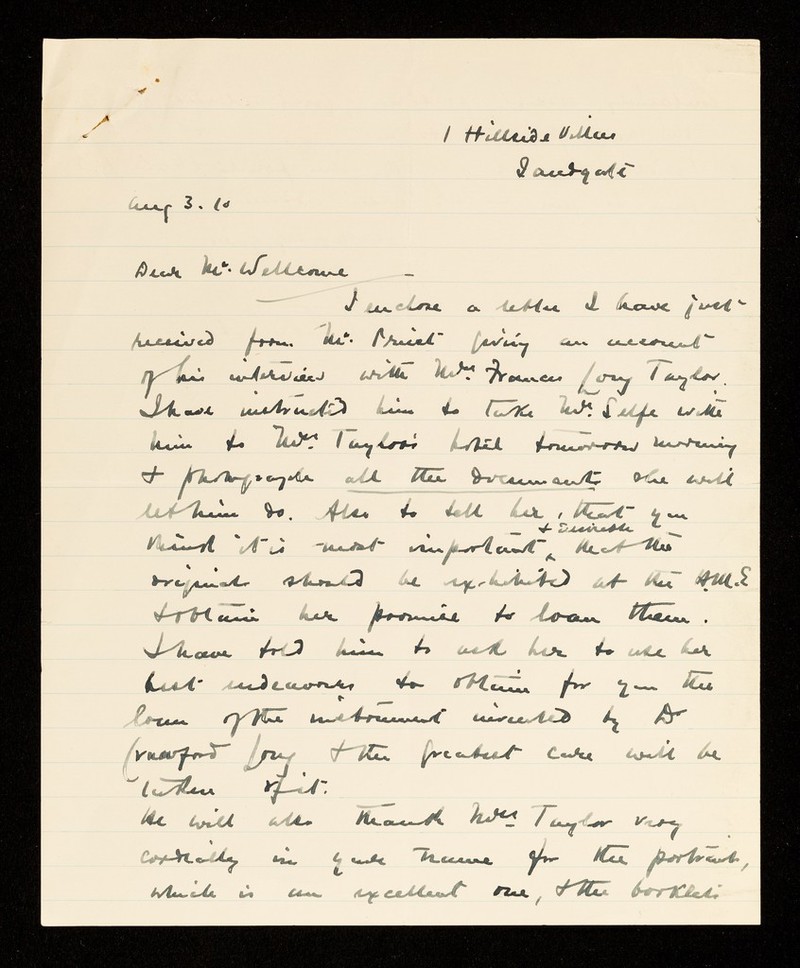 1 Hillside Villas
Sandgate
Aug 3. 10
Dear Mr. Wellcome
I enclose a letter I have just
received from Mr. Priest giving an account
of his interview with Mrs. Frances Long Taylor.
I have instructed him to take Mr. Selfe with
him to Mrs. Taylor's hotel tomorrow morning
& photograph all the documents she will
let him do. Also to tell her, that you
think it is most important & desirable that the
originals should be exhibited at the H.M.E
& obtain her promise to loan them.
I have told him to ask her to use her
best endeavours to obtain for you the
loan of the instrument invented by Dr
Crawford Long & the greatest care will be
taken of it.
He will also thank Mrs. Taylor very
cordially in your name for the portrait,
which is an excellent one, & the booklets